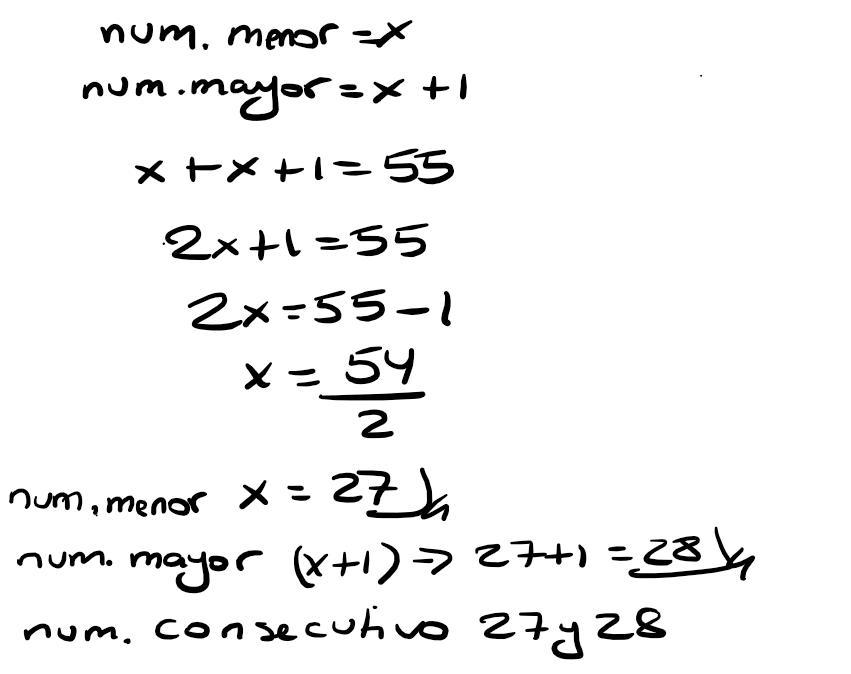 num. menor = x
num. mayor = x + 1
x + x + 1 = 55
2x + 1 = 55
2x = 55 - 1
x = 54
2
num. menor x = 27
num. mayor (x+1) → 27+1 = 28
num. consecutivo 27 y 28